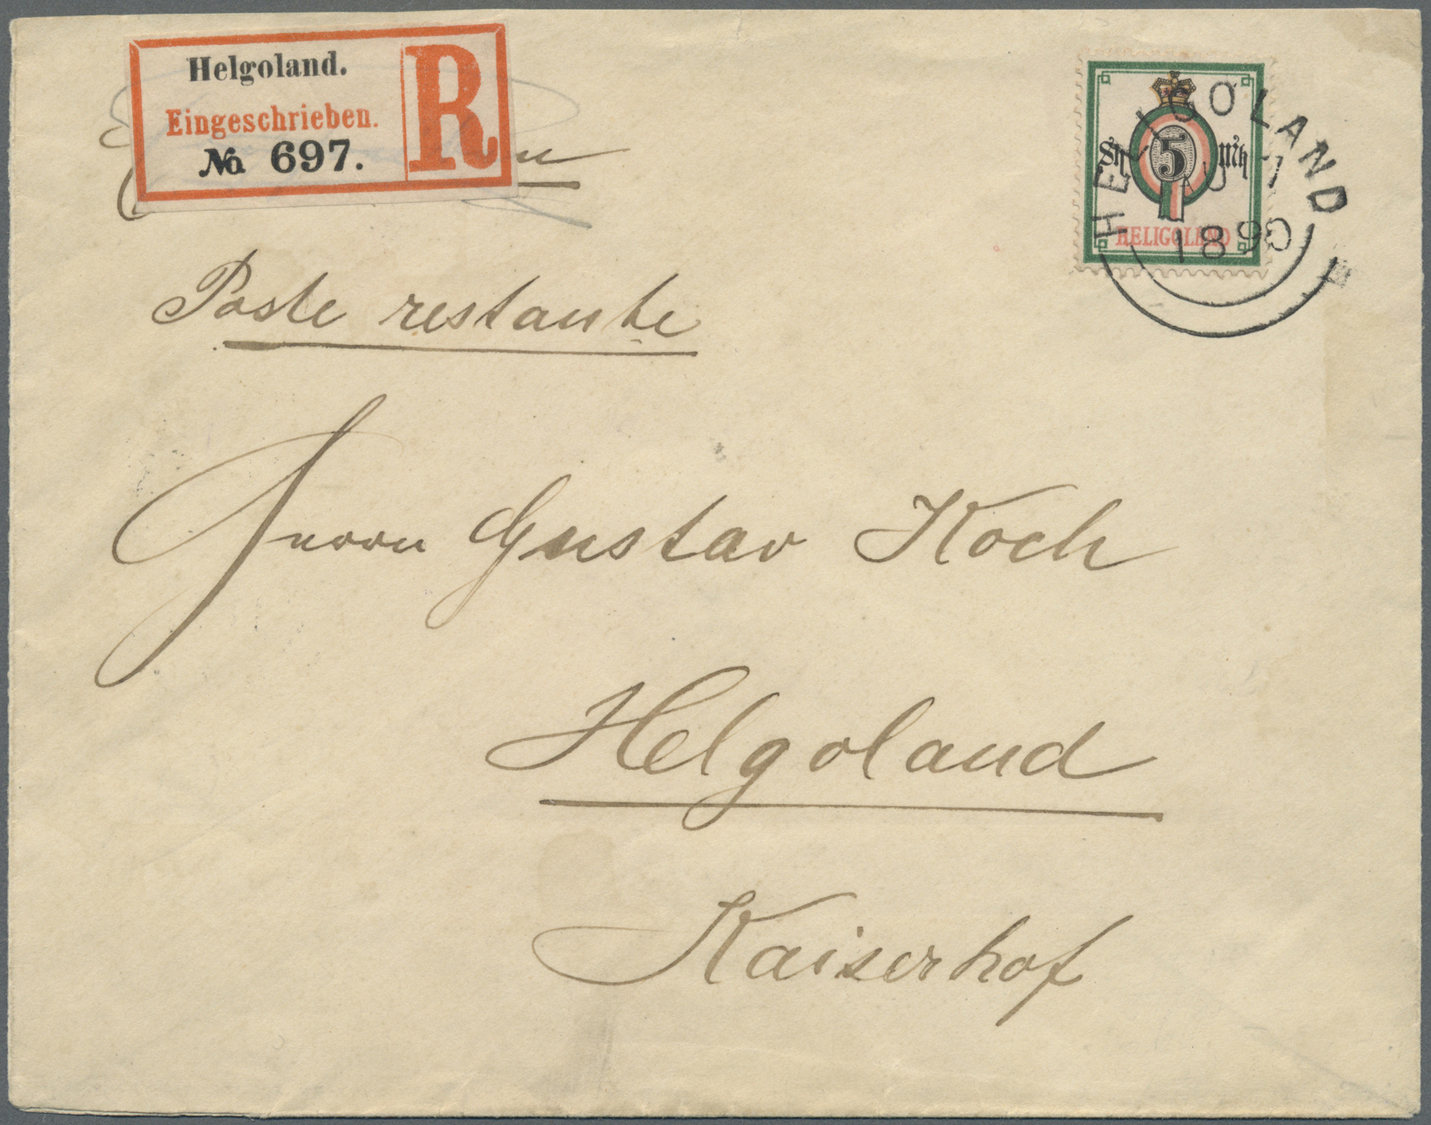 Helgoland.
Eingeschrieben.
No. 697.
R
HELIGOLAND
AU 1
1890
Sh 5 Mk
HELIGOLAND
Poste restante
Herrn Gustav Koch
Helgoland
Kaiserhof